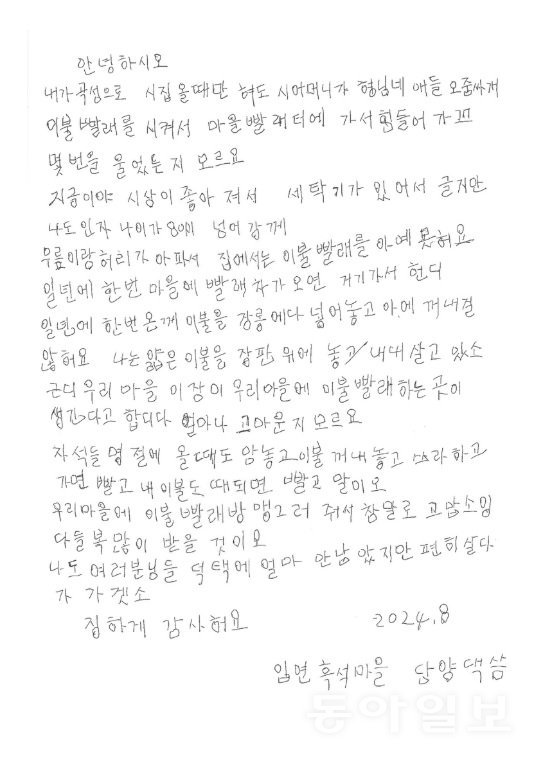 안녕하시오
내가 곡성으로 시집 올때만 혀도 시어머니가 형님네 애들 오줌싸게
이불 빨래를 시켜서 마을빨래터에 가서 힘들어 가꼬
몇번을 울었는지 모르요
지금이야 시상이 좋아 져서 세탁기가 있어서 글지만
나도 인자 나이가 80이 넘어 감께
무릎이랑 허리가 아파서 집에서는 이불빨래를 아예 못혀요
일년에 한번 마을에 빨래차가 오면 거기가서 헌디
일년에 한번온게 이불을 장롱에다 넣어놓고 아에 꺼내질
않혀요 나는 얇은 이불을 장판 위에 놓고 내대 살고 있소
근디 우리 마을 이장이 우리마을에 이불빨래하는 곳이
생긴다고 합디다 얼마나 고마운지 모르요
자석들 명절에 올때도 암놓고 이불 꺼내놓고 쓰라하고
가면 빨고 내이불도 때되면 빨고 말이오
우리마을에 이불빨래방 맹그러 줘서 참말로 고맙소잉
다들 복 많이 받을 것이오
나도 여러분님들 덕택에 얼마 안남았지만 편히살다
가 가겟소
징하게 감사혀요 2024.8
입면 흑석마을 단양댁 씀
동아일보